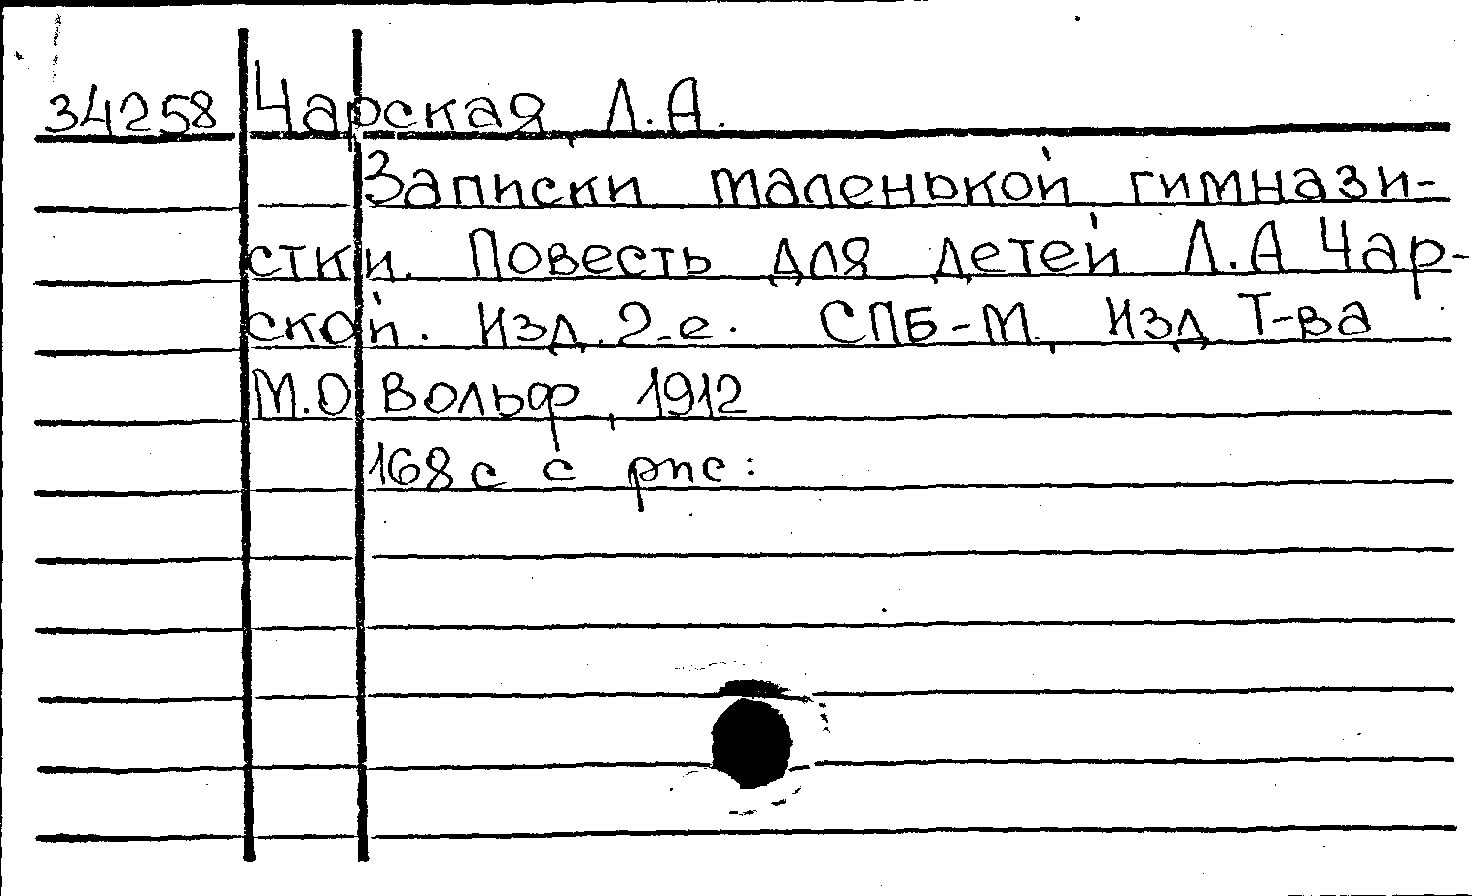 34258 Чарская, Л.А.
Записки маленькой гимнази-
стки. Повесть для детей Л.А Чар-
ской. Изд. 2-е. СПБ-М, Изд Т-ва
М.О Вольф, 1912
168 с с рис: